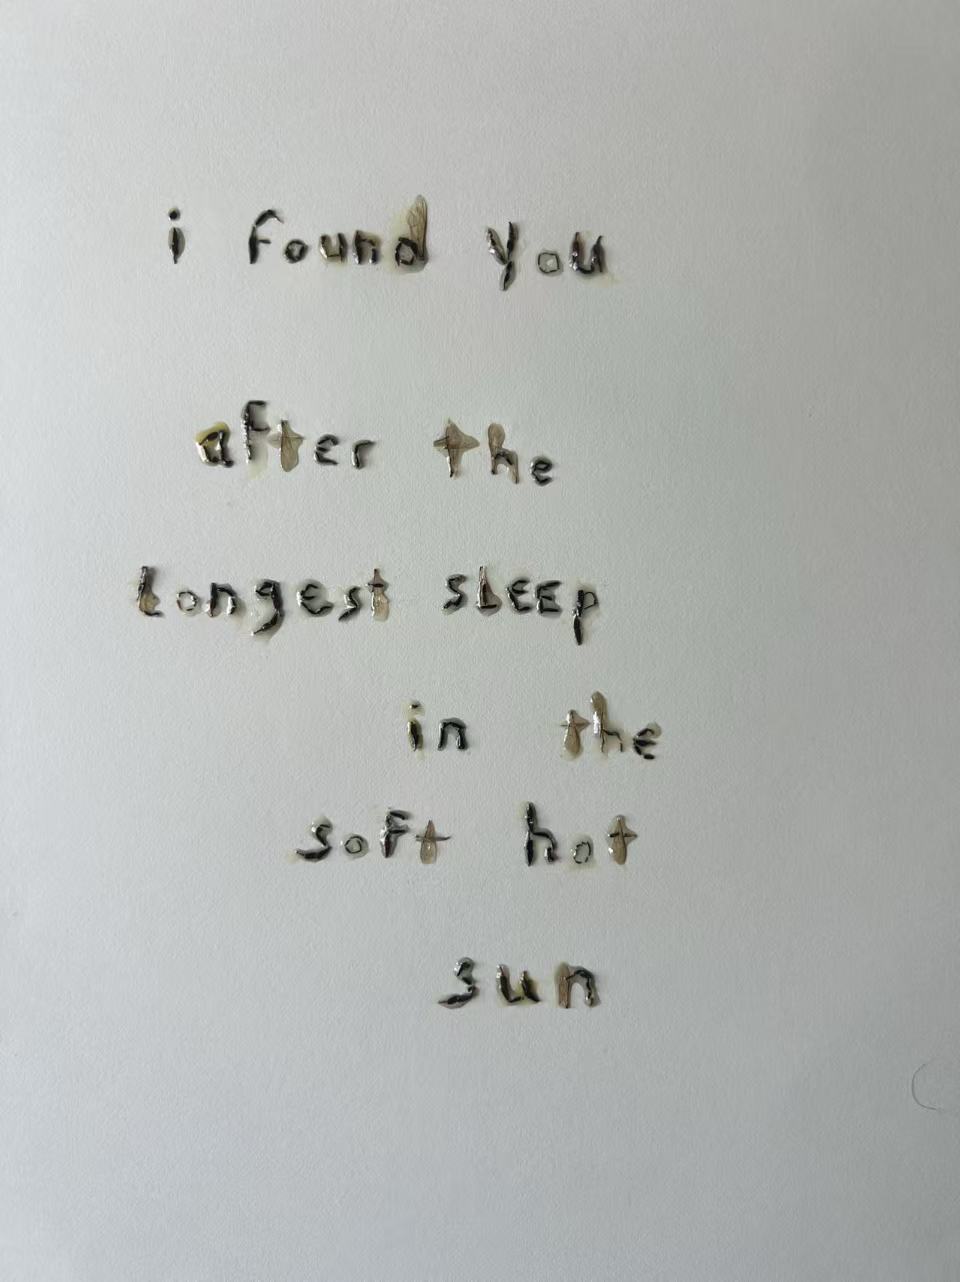 i found you
after the
longest sLEEp
in the
soft hot
sun